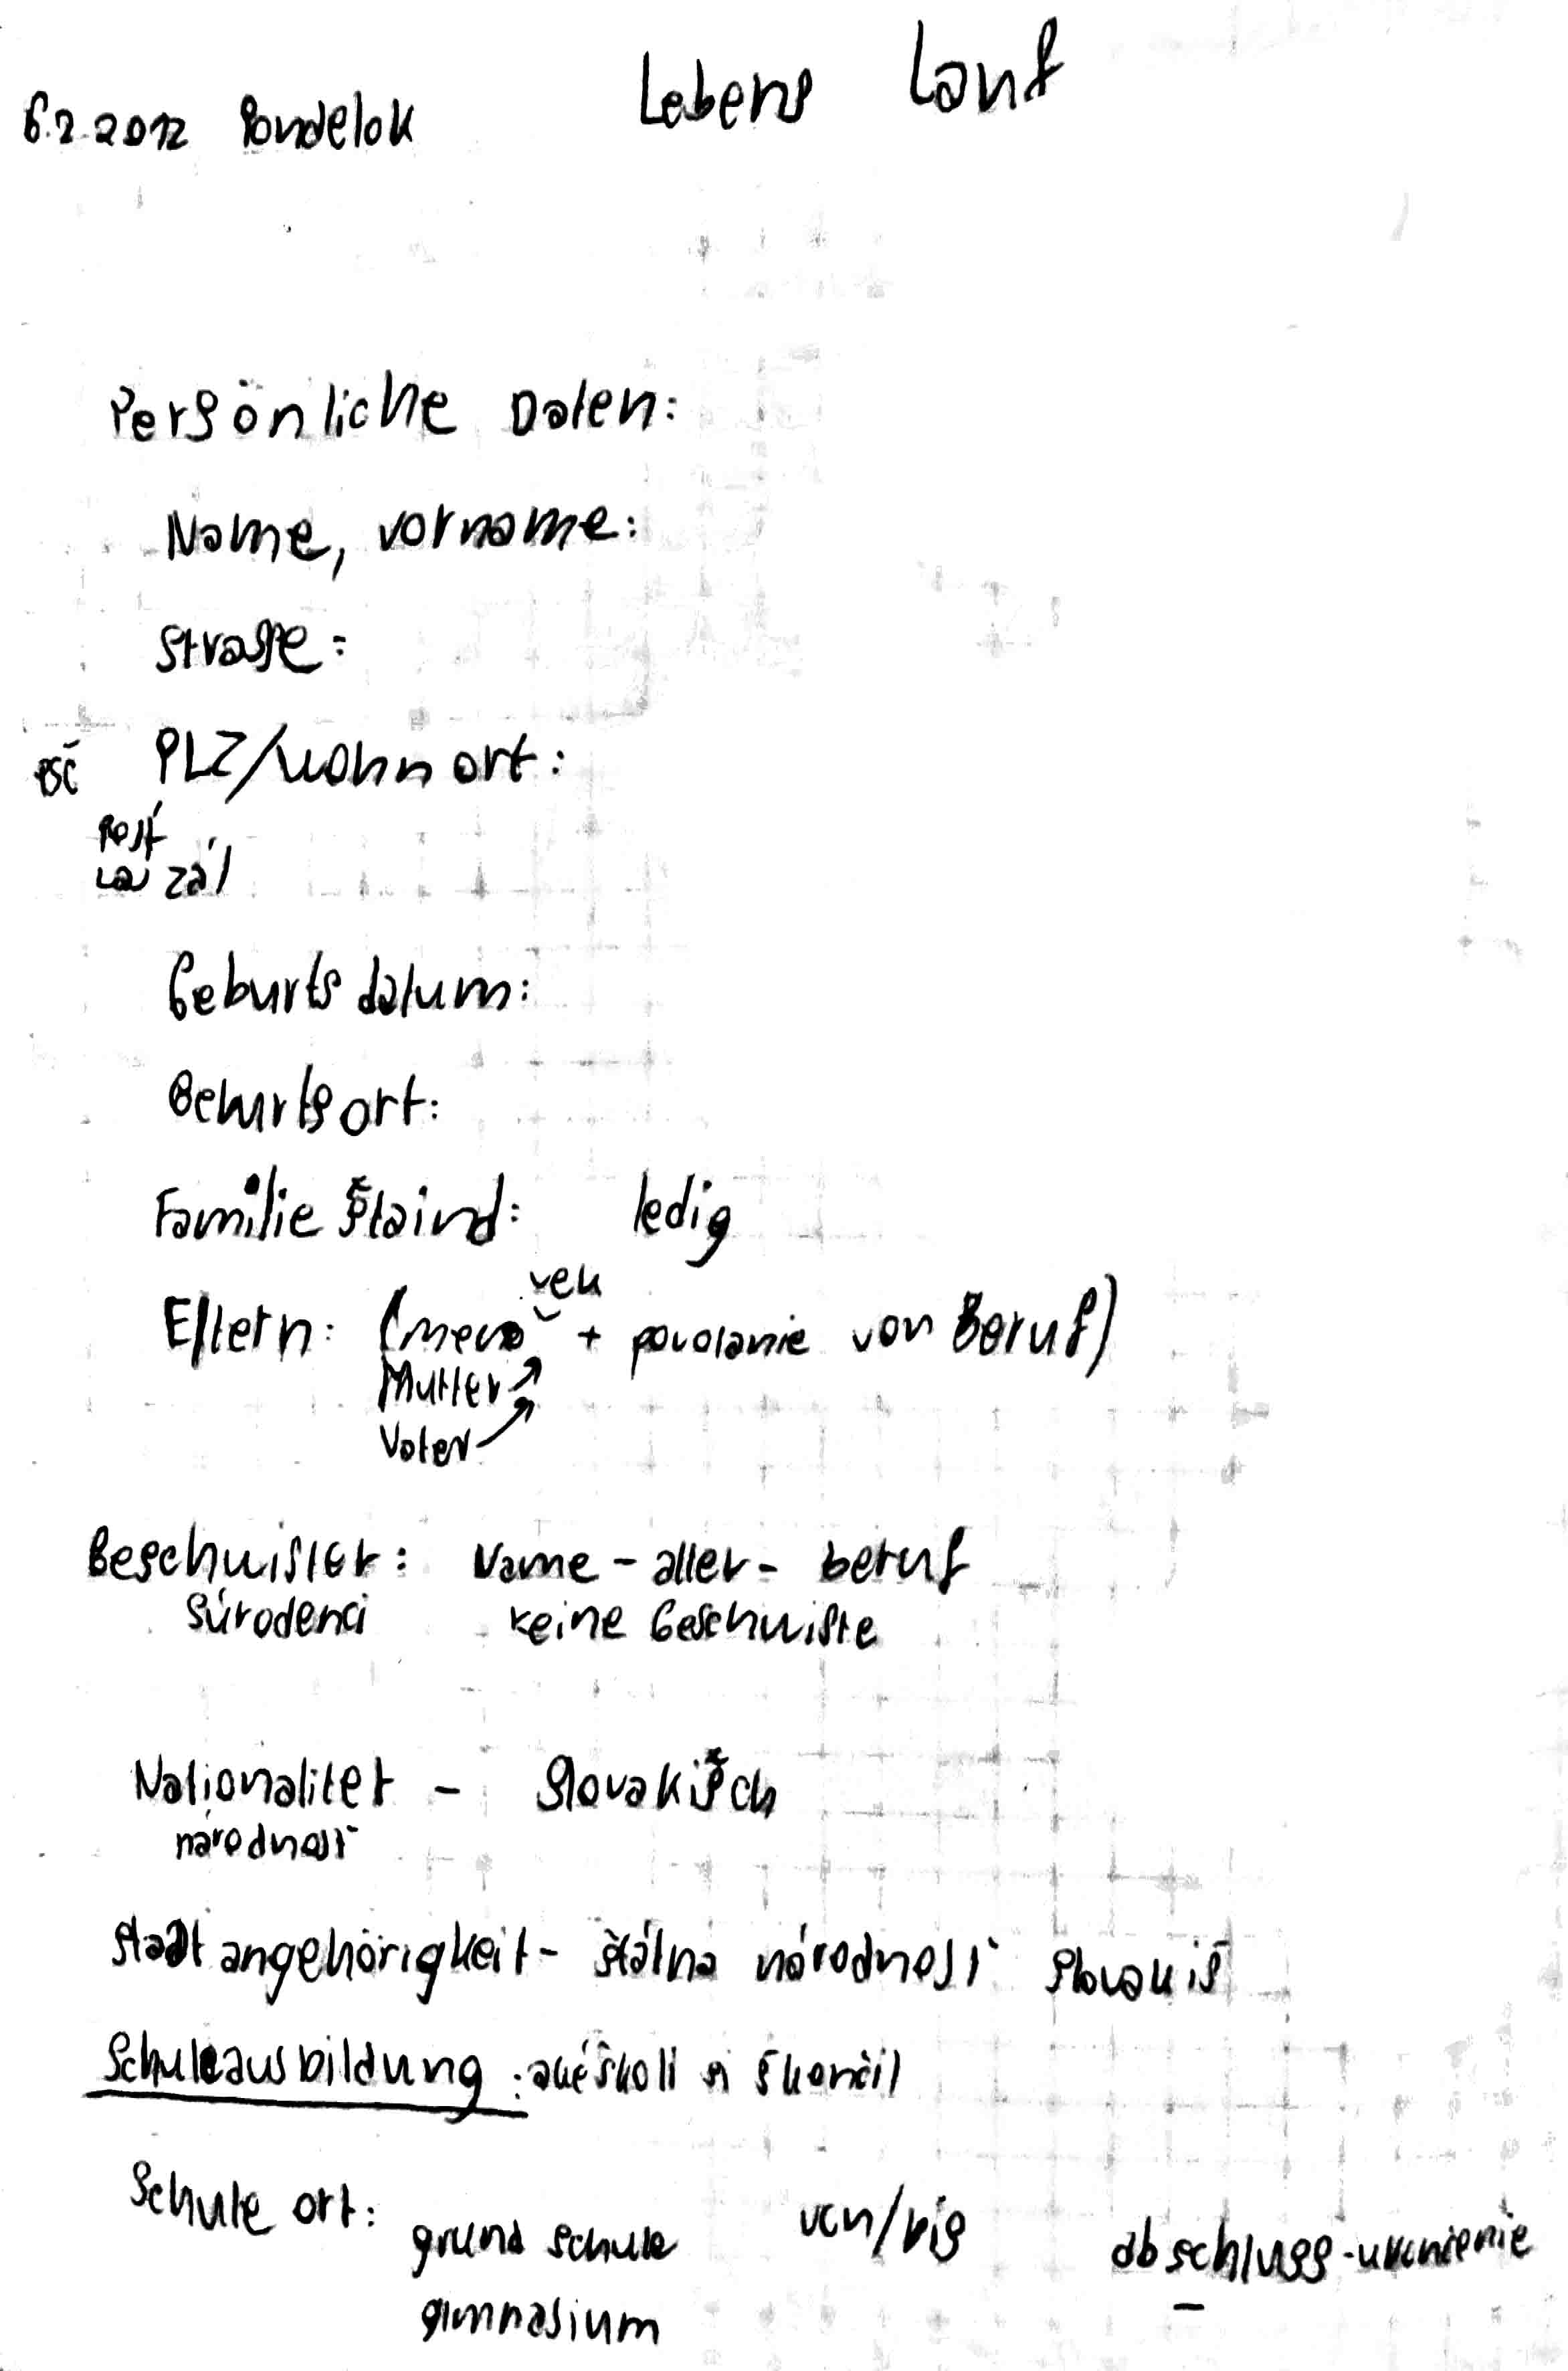 6.2.2012 Pondelok Lebens Lauf
Persönliche Daten:
Name, vorname:
Strasse:
PSČ PLZ/Wohnort:
Post
zál
Geburtsdatum:
Geburtsort:
Familie Štaind: ledig
vek
Eltern: (meno + povolanie von Beruf)
Mutter
Vater
Geschwister: Name - alter - beruf
Súrodenci keine Geschwiste
Nationalitet - Slovakišch
národnosť
Stadtangehörigkeit - štátna národnosť Slovakiš
Schuleausbildung : aké školi si skončil
Schule ort: von/bis abschluss - ukončenie
grund schule
gimnasium